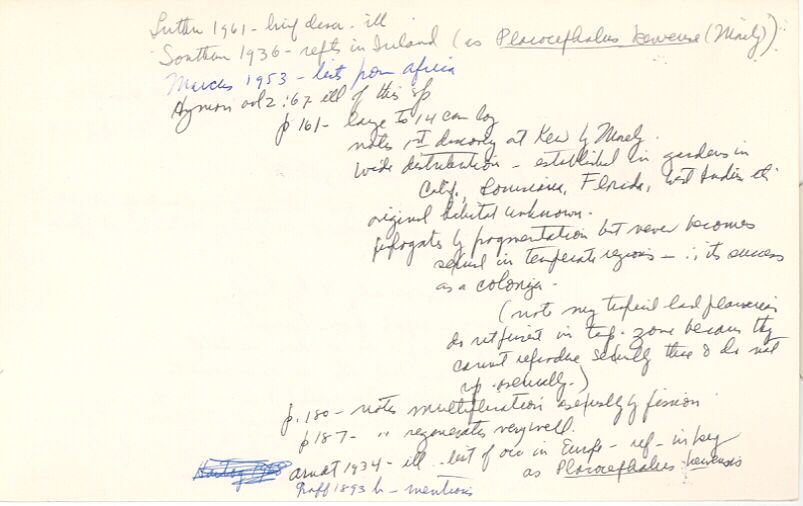 1961 - brief descr. ill
Southern 1936 - repts in Ireland (as Placocephalus kewense (Mosely))
Marcus 1953 - lists from africa
Hyman vol 2 :67 ill of this sp
p 161 - large to 14 cm long
notes 1st discovery at Kew by Mosely.
wide distribution - established in gardens in
Calif, Louisiana, Florida, West Indies etc
original habitat unknown.
propogates by fragmentation but never becomes
sexual in temperate regions - ∴ its success
as a colonizer.
(note many tropical land planarians
do not persist in temp. zone because they
cannot reproduce sexually there & do not
rep. asexually.)
p. 180 - notes multiplication asexually by fission
p 187 - " regenerates very well.
Arndt 1934 - ill. list of occ in Europe - ref - in key
as Placocephalus kewensis
Graff 1893 b - mentions